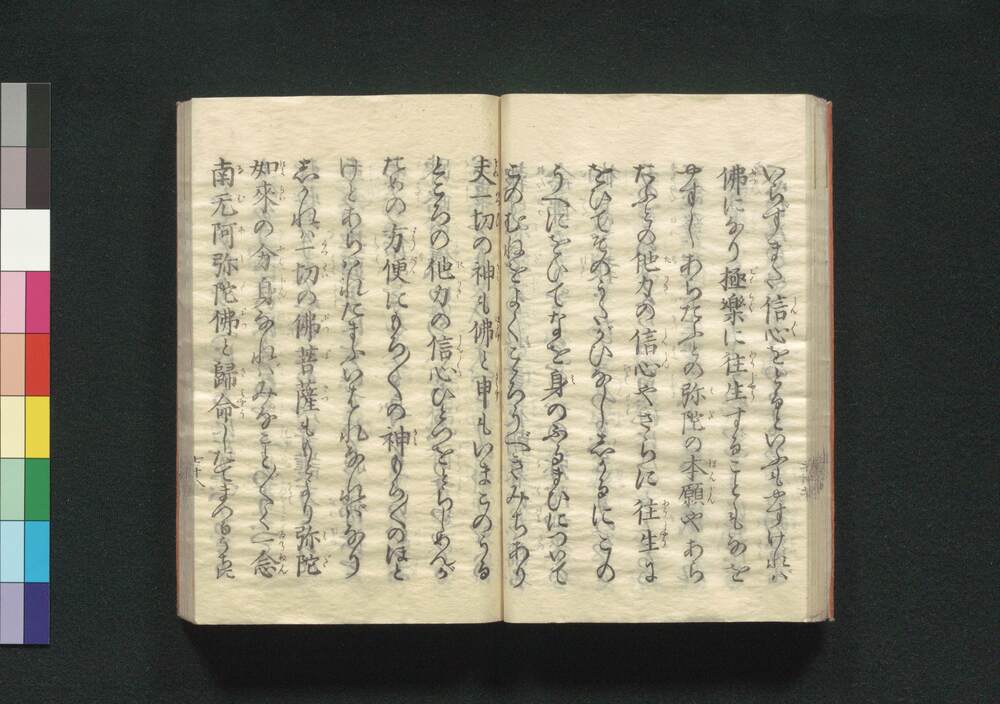 いらずまた信心をとるといふもやすければ
佛になり極樂に往生することもなを
やすしあらたふとの弥陀の本願やあら
たふとの他力の信心やさらに往生に
をひてそのうたがひなししかるにこの
うへにをひてなを身のふるまひについて
このむねをよくこころうべきみちあり
夫一切の神も佛と申もいまこのうる
ところの他力の信心ひとつをとらしめんが
ための方便にもろ〱の神もろ〱のほと
けとあらはれたまふいはれなればなり
しかれば一切の佛菩薩ももとより弥陀
如來の分身なればみなこと〲く一念
南无阿弥陀佛と歸命したてまつるうち